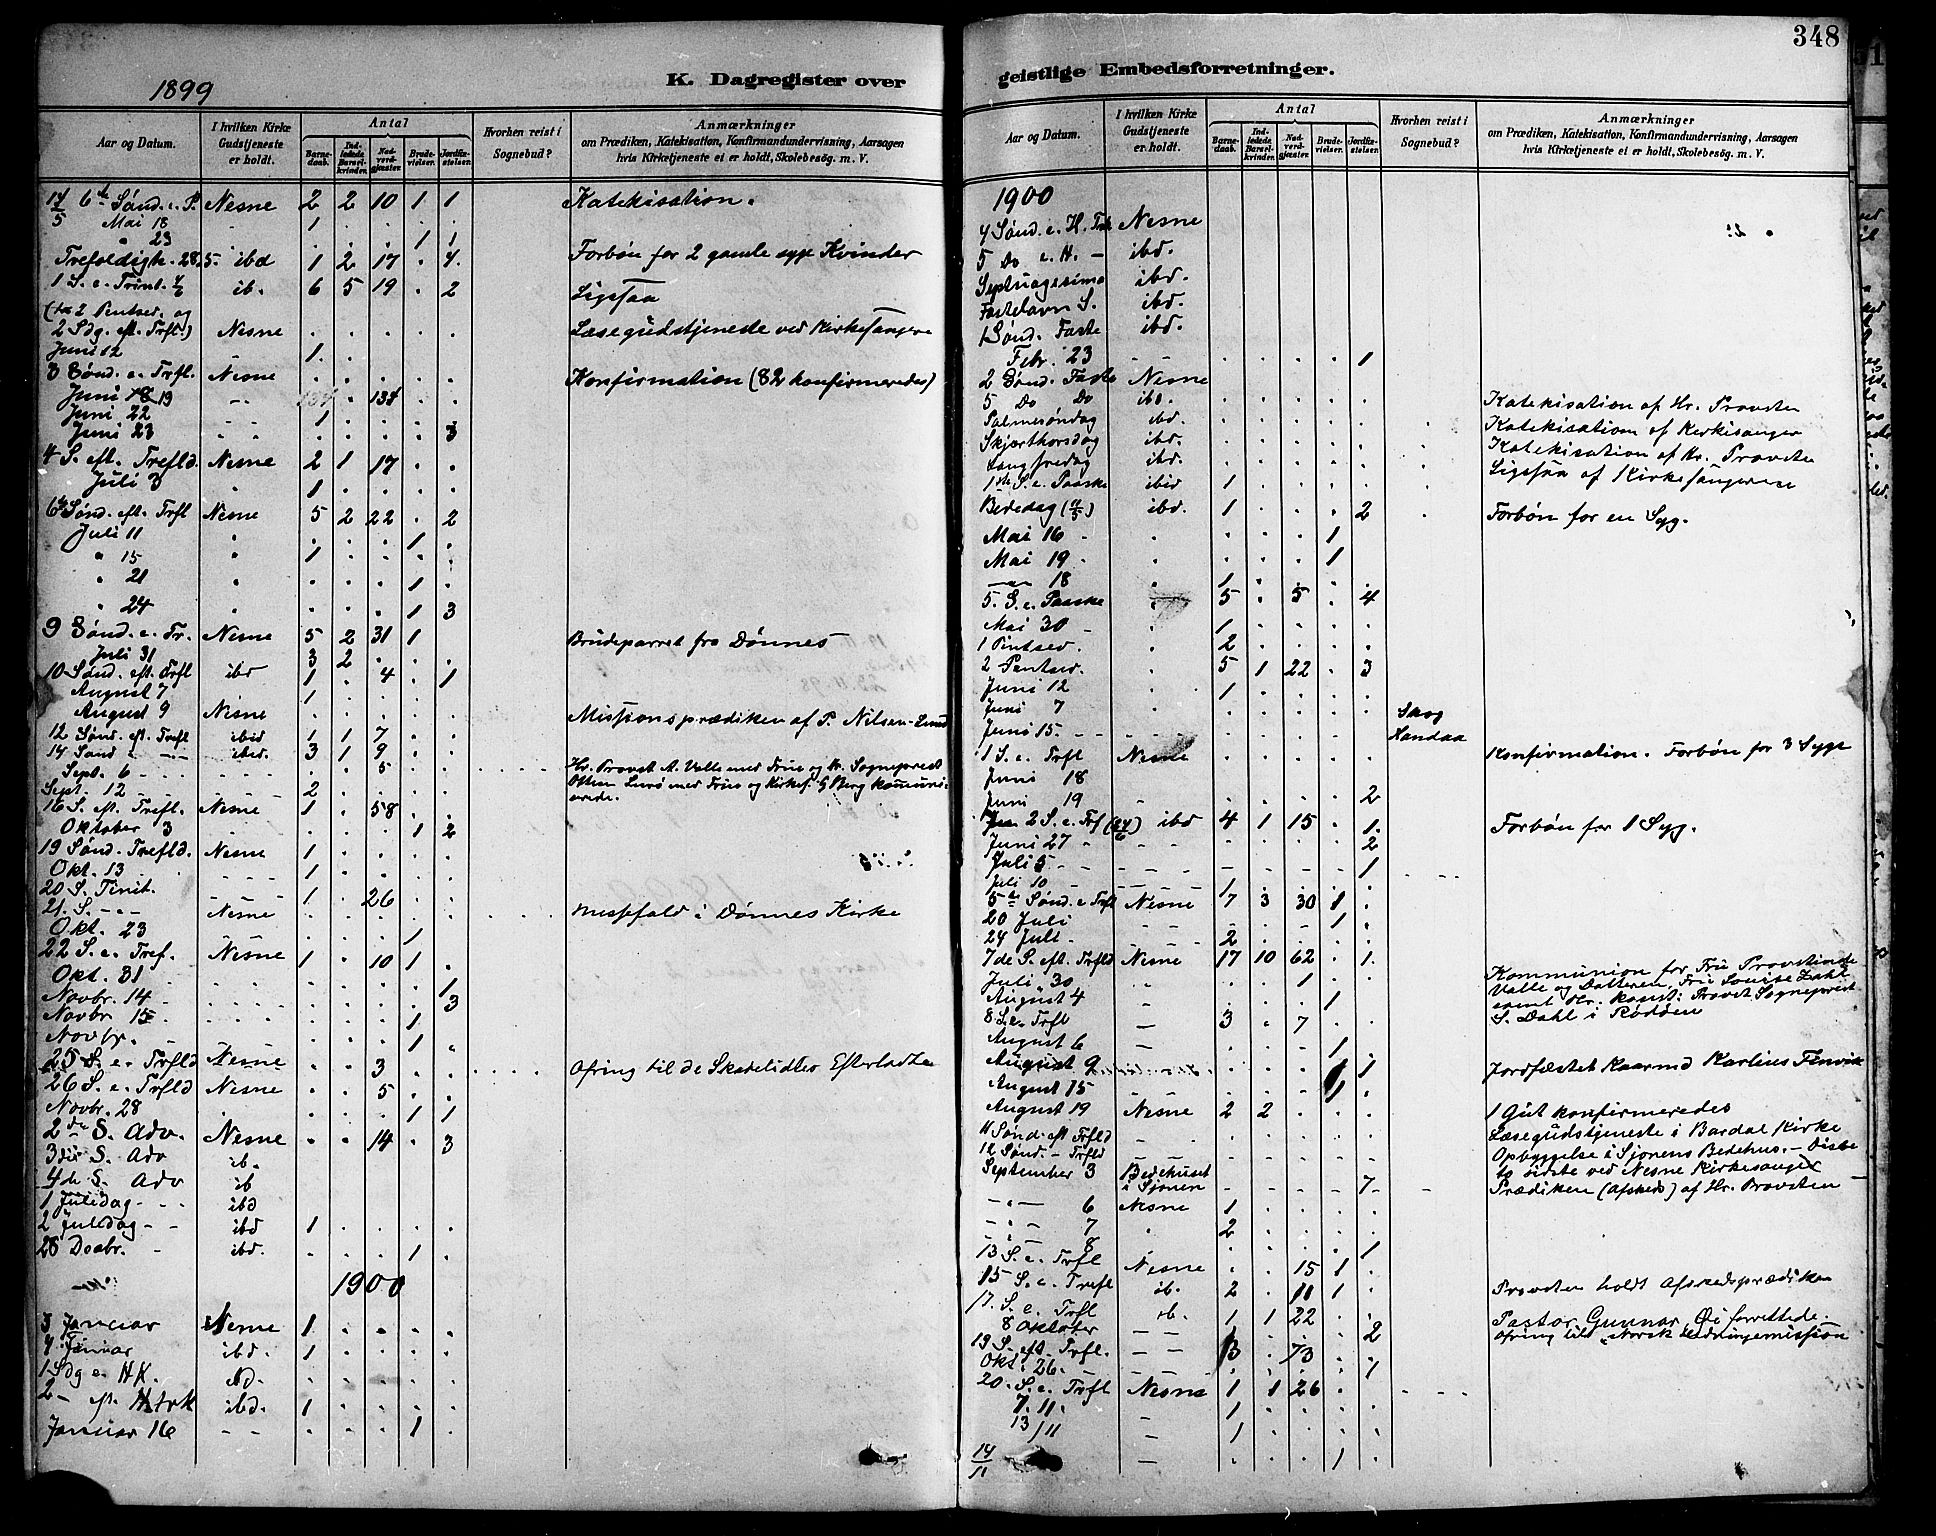 1899
K. Dagregister over
Aar og Datum. I hvilken Kirke Gudstjeneste er holdt. Antal Barnedaab. Indledede Barselkvinder. Nadverdgjæster. Brudevielser. Jordfæstelser. Hvorhen reist i Sognebud? Anmærkninger om Prædiken, Katekisation, Konfirmandundervisning, Aarsagen hvis Kirketjeneste ei er holdt, Skolebesøg. m. V.
14/5 6te Sønd. e. P. Nesne 2 2 10 1 1 Katekisation.
Mai 18 1 . . . .
" 23 . . . 1 1
Trefoldigh. 28/5. ibd 1 2 17 . 4. Forbøn for 2 gamle syge Kvinder
1 S. e. Trinit. 4/6 ib. 6 5 19 . 2 Ligtaa
2 Pentsed. og
2 Sdg. eft. Trfl.) Nesne . . . . . Læsegudstjeneste ved Kirkesangere
Juni 12 1. . . . .
3 Sønd. e. Trfl. Nesne . . . . . Konfirmation (82 konfirmeredes)
Juni 19 134 . .
Juni 22 1 . . . .
Juni 23 . . . . 3
4 S. eft. Trefld. Nesne 2 1 17 . .
Juli 3 1 . . . .
6te Sønd. eft. Trfl Nesne 5 2 22 . 2
Juli 11 . . . 1 .
" 15 1 . . . .
" 21 . . . 1 .
" 24 . . . 1 3
9 Sønd. e. Tr. Nesne 5 2 31 1 Brudeparret fra Dønnes
Juli 31 3 2 . . .
10 Sønd. eft. Trfl ibd 1 . 4 . 1
August 7 1 . . . .
August 9 Nesne . . . . . Missionsprædiken af P. Nilsen-Lund
12 Sønd. eft. Trefl ibid 1 1 7 . .
14 Sønd - - ibid. 3 1 9 . .
Sept. 6 . . 5 . . Hr. Provst A. Valle med Frue og Hr. Sogneprest
Sept. 12 2 . . . . Lurø med Frue og Kirkes. G Berg kommuni-
cerede.
16 S. eft. Trefl. Nesne 1 . 58 . .
Oktober 3 . . . 1 2
19 Sønd. Trefld. Nesne 1 . . . .
Okt. 13 1 . . . .
20 S. Tinit. 1 . 26 . .
21. S. - - Nesne . . . . . Messefald i Dønnes Kirke
Okt. 23 . . . 1 .
22 S. e. Tref. Nesne 1 . 10 1 .
Okt. 31 . . . . 1
Novbr. 14 . . . . 3
Novbr 15 . . . 1 .
Novbr. . . . 1 .
25 S. e. Trfld Nesne . . 3 . . Ofring til de Efterladte
26 S. e. Trfld Nesne . . 5 . .
Novbr. 28 . . . 1 1
2den S. Adv. Nesne . . 14 . 3
3die S. Adv ib.
4de S. Adv ib
1 Juledag - ibd
2 Juledag - - ibd 1 . . . .
28 Decbr. ibd. . . . 1 .
1900
3 Januar Nesne 1 . . . .
4 Januar ibd. 1 . . . .
1 Sdg e. H K.
2 - eft. H.trk ibd. 1 . . . .
Januar 16 - - . . . 1
348
geistlige Embedsforretninger.
Aar og Datum. I hvilken Kirke Gudstjeneste er holdt. Antal Barnedaab. Indledede Barselkvinder. Nadverdgjæster. Brudevielser. Jordfæstelser. Hvorhen reist i Sognebud? Anmærkninger om Prædiken, Katekisation, Konfirmandundervisning, Aarsagen hvis Kirketjeneste ei er holdt, Skolebesøg. m. V.
1900
4 Sønd. e. H. Nesne
5 Do e. H. - ibd.
Septuagesima ibd.
Fastelavn S. ibd.
1 Sønd. Faste ibd.
Febr. 23 - - . . . . 1
2 Sønd. Faste Nesne
5 Do Do ibd. . . . . . Katekisation af Hr. Provsten
Palmesøndag ibd. . . . . . Katekisation af Kirkesanger
Skjærthorsdag ibd. . . . . . Katekisation af Hr. Provsten
Langfredag ibd. . . . . . af Kirkesangeren
1ste S. e. Paaske ibid 1 . . . .
Bededag (11/5) ibd. 1 . . . 2 Forbøn for en Syg.
Mai 16 . . . 1
Mai 19 . . . 1
-"- 18 1 . . . .
5. S. e. Paaske 5 . 5 . 4
Mai 30 1 . . . .
1 Pintsed. 2 . . . .
2 Pentsed. 5 1 22 . 3
Juni 12 1 . . . .
Juni 7 . . . . . Skog
Juni 15. Handaa
1 S. e. Trfl Nesne Konfirmation. Forbøn for 3 Syge
Juni 18
Juni 19 . . . . 2
2 S. e. Trf (24/6) ibd 4 1 15 . 1. Forbøn for 1 Syg.
Juni 27 . . . . 2
Juli 5 . . . . 1
Juli 10 1 . . . .
5te Sønd. e Trfl Nesne 7 3 30 1 .
20 Juli . . . 1 .
24 Juli. 2 . . . .
7de S. eft. Trfld Nesne 17 10 62 . 1. Kommunion for Fru Provstinde
Juli 30 . . 1 . . Valle og Datteren, Fru Louise Dahl
August 4 — . . . 1 . samt Hr. Provst Sogneprest
8 S. e. Trfl — 3 . 7 . . S. Dahl i Rødden
August 6 — . . . 1 .
August 9 . . . 1 1 Jordfæstet Kaarmd Karlius Finvik
August 15 . . . 1 .
August 19 Nesne 2 2 . . . 1 Gut konfirmeredes
11 Sønd. eft Trfld . . . . . Læsegudstjeneste i Bardal Kirke
12 Sønd. - Trfld Opbyggelse i Sjonens Bedehus. - Disse
September 3 Bedehuset to sidste ved Nesne Kirkesanger
i Sjonen - - - - 7 - Prædiken (Afskeds) af Hr. Provsten
-"- 6 Nesne 1 . . . .
-"- 7 2 . . . .
-"- 8 . . . . 1
13 S. e. Trfl Nesne . . 15 1 .
15 S. e. Trefl ib. 2 . 11 1 . Provsten holdt Afskedsprædiken
17. S. e. Trfl ib. 1 1 22 . . Pastor Gunnar forrettede
8 Oktober — — . . . . 2 Ofring til
19 S. eft. Trfl. - - 13 . 73 . .
Okt. 26. . . . . 1
20. S. e. Trfl Nesne 1 1 26 . .
7. 11. 1 . . . .
13/11 — 1 . . . .
14/11 — . . . 1 .